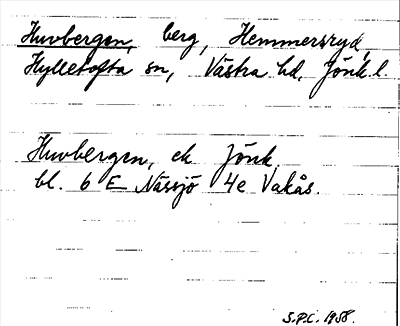 Huvbergen, berg, Hemmersryd,
Hylletofta sn, Västra hd, Jönk. l.
Huvbergen, ek Jönk.
bl. 6 E Nässjö 4e Vakås.
S.P.C. 1958.